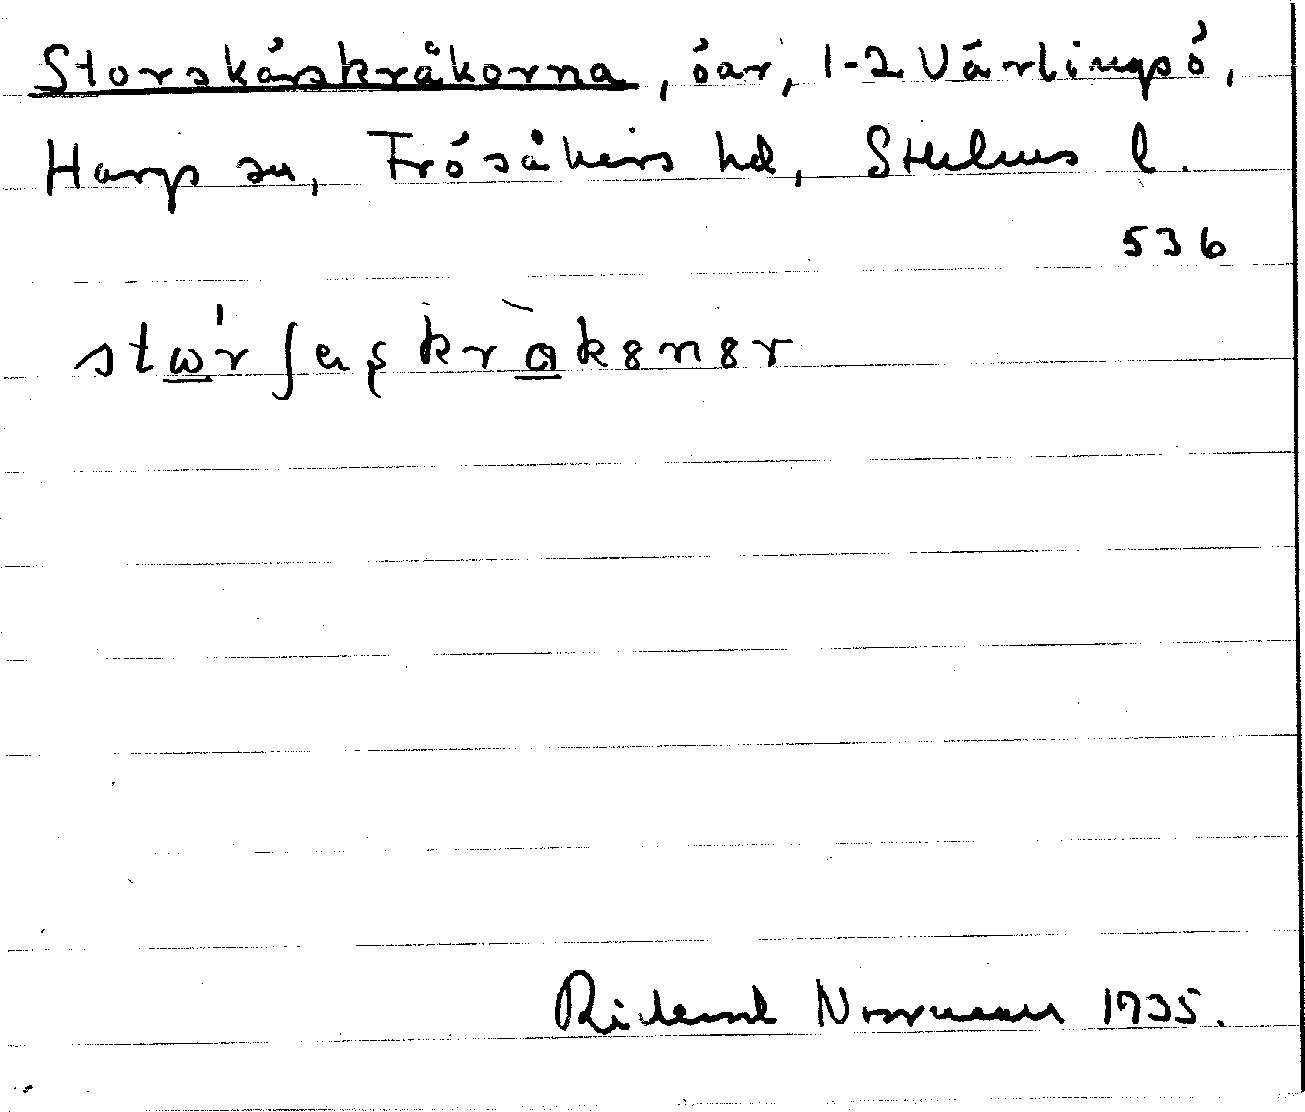 Storskärskråkorna, öar, 1-2 Värlingsö,
Hargs sn, Frösåkers hd, Sthlms l.
536
Rickard Norrman 1935.